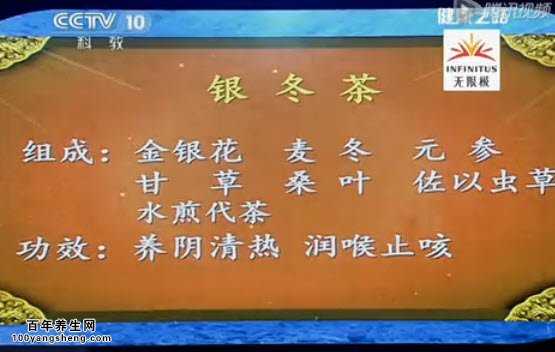 CCTV 10
科教
健康之路
腾讯视频
INFINITUS
无限极
银冬茶
组成：金银花 麦冬 元参
甘草 桑叶 佐以虫草
水煎代茶
功效：养阴清热 润喉止咳
百年养生网
100yangsheng.com